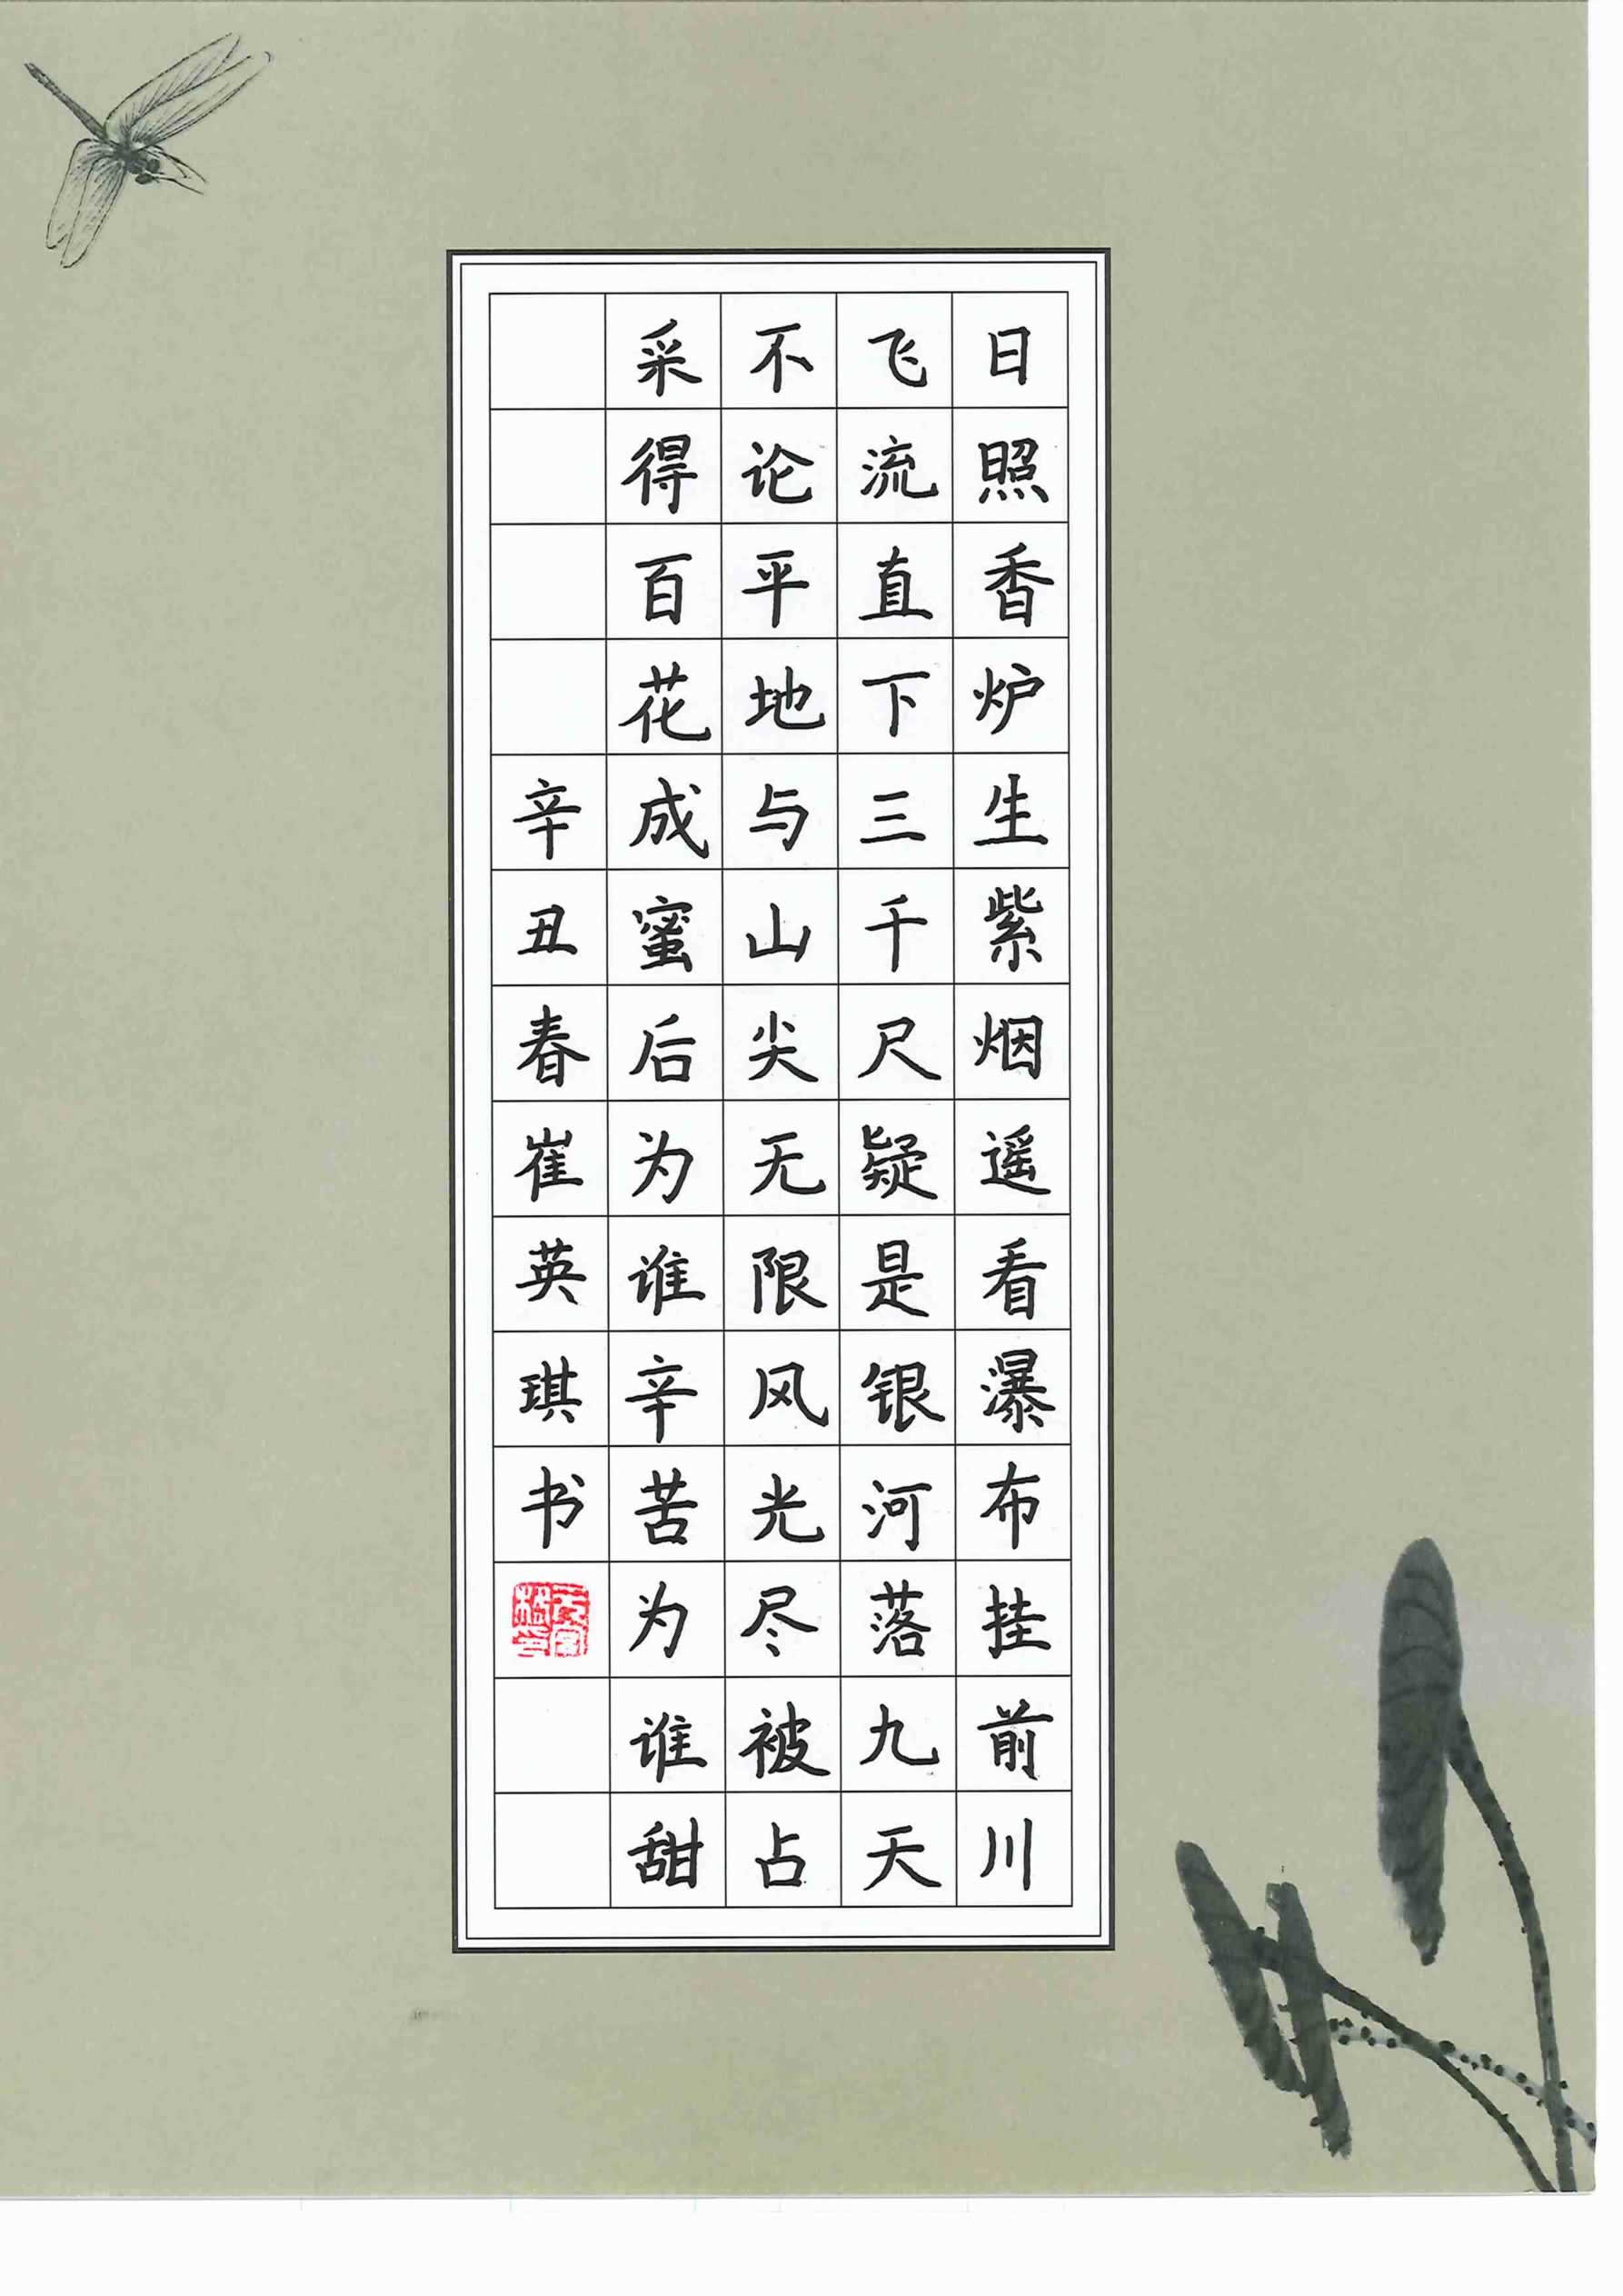 日照香炉生紫烟遥看瀑布挂前川
飞流直下三千尺疑是银河落九天
不论平地与山尖无限风光尽被占
采得百花成蜜后为谁辛苦为谁甜
辛丑春崔英琪书